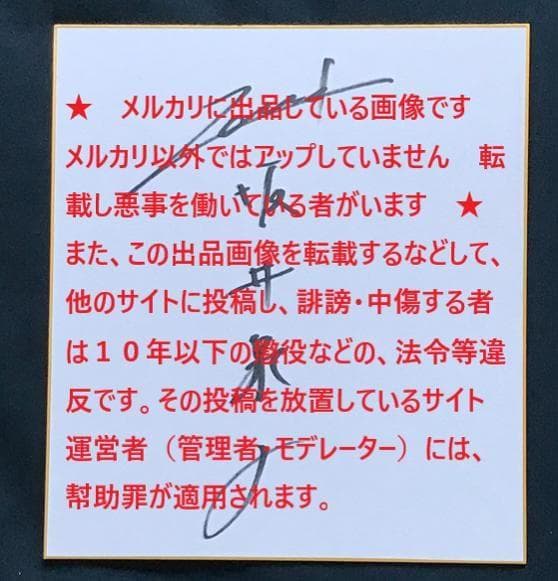 ★　メルカリに出品している画像です
メルカリ以外ではアップしていません　転
載し悪事を働いている者がいます　★
また、この出品画像を転載するなどして、
他のサイトに投稿し、誹謗・中傷する者
は１０年以下の懲役などの、法令等違
反です。その投稿を放置しているサイト
運営者（管理者・モデレーター）には、
幇助罪が適用されます。